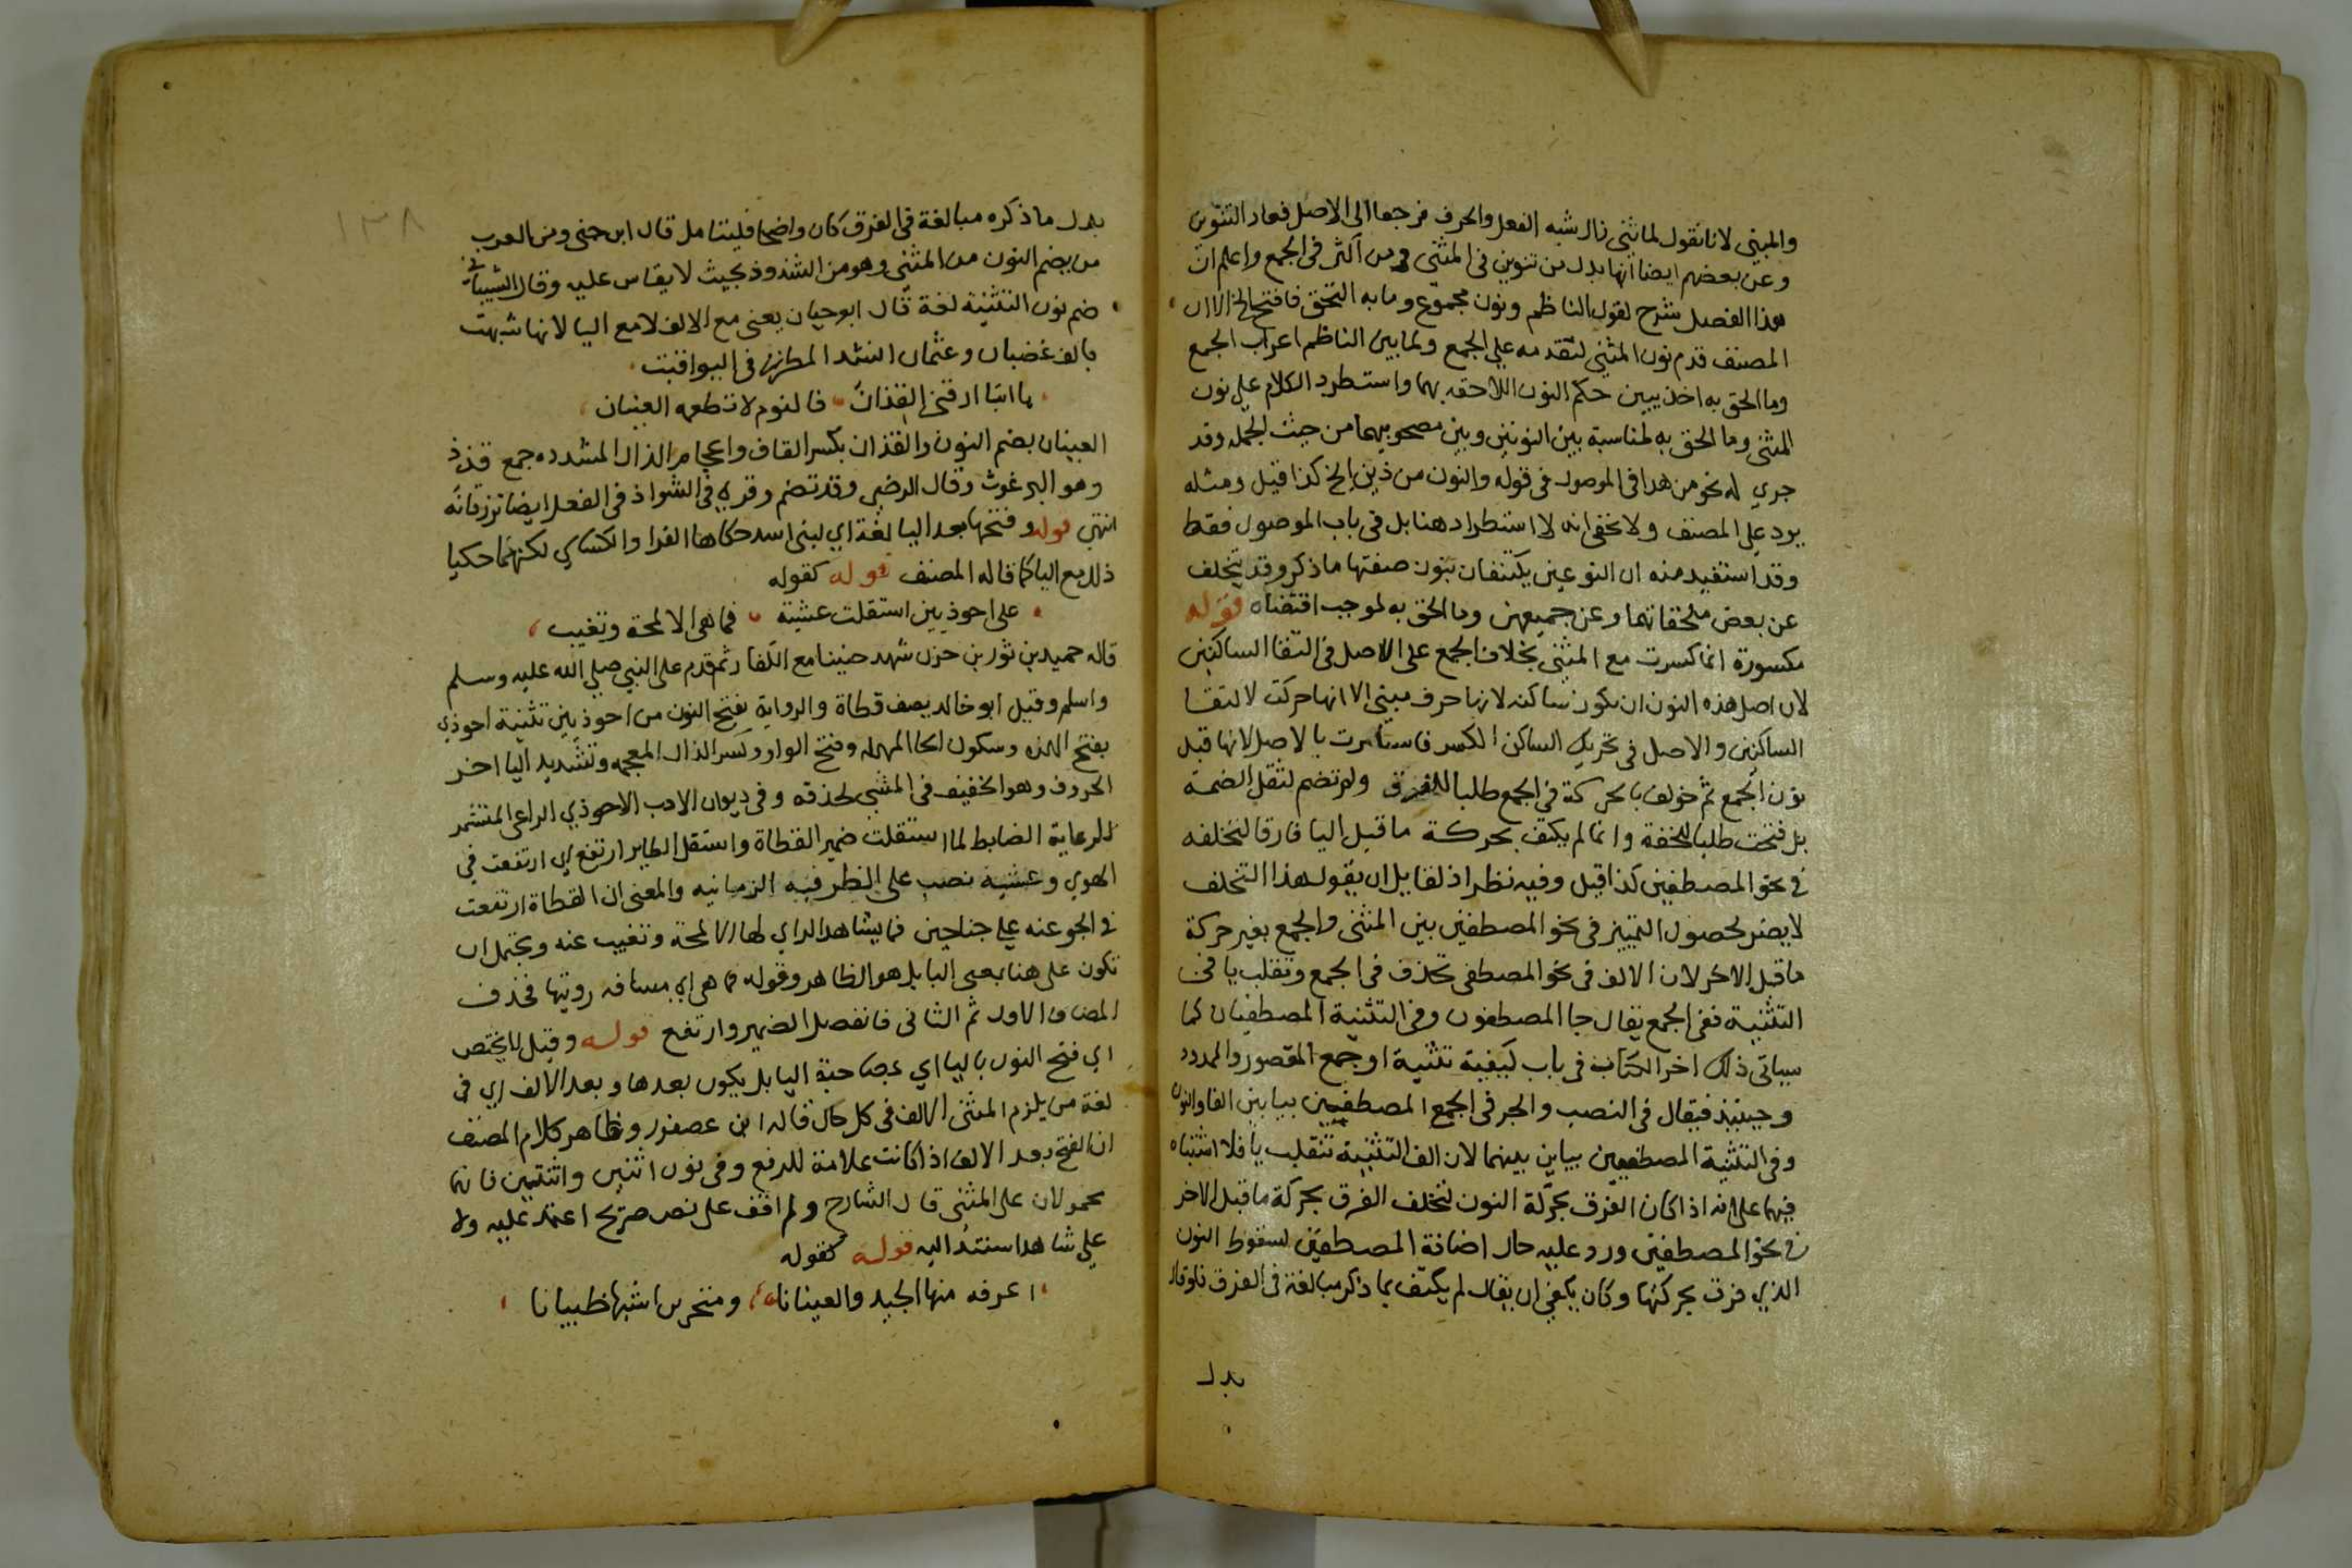 والمبني لانا نقول لما ثني زال شبه الفعل والحرف فرجعا الى الاصل فعاد التنوين
وعن بعضهم ايضا انها بدل من تنوين في المثنى ومن اكثر في الجمع واعلم ان
هذا الفصل شرح لقول الناظم ونون مجموع وما به التحق فافتح الخ الا ان
المصنف قدم نون المثنى لتقدمه على الجمع ولما بين الناظم اعراب الجمع
وما الحق به اخذ يبين حكم النون اللاحقة بهما واستطرد الكلام على نون
المثنى وما الحق به لمناسبة بين النونين وبين مصحوبيهما من حيث الجملة وقد
جري له نحو من هذا في الموصول في قوله والنون من ذين الخ كذا قيل ومثله
يرد على المصنف ولا يخفى انه لا استطراد هنا بل في باب الموصول فقط
وقد استفيد منه ان النوعين يكتنفان بنون صفتها ما ذكر وقد يتخلف
عن بعض ملحقاتهما وعن جميعهن وما الحق به لموجب اقتضاه قوله
مكسورة انما كسرت مع المثنى بخلاف الجمع على الاصل في التقا الساكنين
لان اصل هذه النون ان تكون ساكنة لانها حرف مبني الا انها حركت لالتقا
الساكنين والاصل في تحريك الساكن الكسر فاستاثرت بالاصل لانها قبل
نون الجمع ثم خولف بالحركة في الجمع طلبا للفرق ولم تضم لثقل الضمة
بل فتحت طلبا للخفة وانما لم يكتف بحركة ما قبل اليا فارقا لتخلفه
في نحو المصطفين كذا قيل وفيه نظر اذ لقايل ان يقول هذا التخلف
لا يضر لحصول التمييز في نحو المصطفين بين المثنى والجمع بغير حركة
ما قبل الاخر لان الالف في نحو المصطفى تحذف في الجمع وتقلب يا في
التثنية ففي الجمع يقال جا المصطفون وفي التثنية المصطفيان كما
سياتي ذلك اخر الكتاب في باب كيفية تثنية او جمع المقصور والممدود
وحينيذ فيقال في النصب والجر في الجمع المصطفين بيا بين الفا والنون
وفي التثنية المصطفيين بيابين بينهما لان الف التثنية تنقلب يا فلا اشتباه
فيهما على انه اذا كان الفرق بحركة النون لتخلف الفرق بحركة ما قبل الاخر
في نحو المصطفين ورد عليه حال اضافة المصطفين لسقوط النون
الذي فرق بحركتها وكان يكفي ان يقال لم يكتف بما ذكر مبالغة في الفرق فلو قال
بدل
١٣٨
بدل ما ذكره مبالغة في الفرق كان واضحا فليتامل قال ابن جني ومن العرب
من يضم النون من المثنى وهو من الشذوذ بحيث لا يقاس عليه وقال الشيباني
ضم نون التثنية لغة قال ابو حيان يعني مع الالف لا مع اليا لانها شبهت
بالف غضبان وعثمان انشد المطرز في اليواقيت
يا ابتا ارقني القذان فالنوم لا تطعمه العينان
العينان بضم النون والقذان بكسر القاف واعجام الذال المشددة جمع قذذ
وهو البرغوث وقال الرضي وقد تضم وقري في الشواذ في الفعل ايضا ترزقانه
انتهى قوله وفتحها بعد اليا لغة اي لبني اسد حكاها الفرا والكسائي لكنهما حكيا
ذلك مع اليا كما قاله المصنف قوله كقوله
على احوذيين استقلت عشية فما هي الا لمحة وتغيب
قاله حميد بن ثور بن حزن شهد حنينا مع الكفار ثم قدم على النبي صلى الله عليه وسلم
واسلم وقيل ابو خالد يصف قطاة والرواية بفتح النون من احوذيين تثنية احوذي
بفتح الهمزة وسكون الحا المهملة وفتح الواو وكسر الذال المعجمة وتشديد اليا اخر
الحروف وهو الخفيف في المشي لحذقه وفي ديوان الادب الاحوذي الراعي المتشمر
للرعاية الضابط لما استقلت ضمير القطاة واستقل الطاير ارتفع اي ارتفعت في
الهوي وعشية نصب على الظرفية الزمانية والمعنى ان القطاة ارتفعت
في الجو عنه على جناحين فما يشاهد الراي لها الا لمحة وتغيب عنه ويحتمل ان
تكون على هنا بمعنى البا بل هو الظاهر وقوله فما هي اي مسافة رويتها فحذف
المضاف الاول ثم الثاني فانفصل الضمير وارتفع قوله وقيل لا يختص
اي فتح النون باليا اي بمصاحبة اليا بل يكون بعدها وبعد الالف اي في
لغة من يلزم المثنى الالف في كل حال قاله ابن عصفور وظاهر كلام المصنف
ان الفتح بعد الالف اذا كانت علامة للرفع وفي نون اثنين واثنتين فانهما
محمولان على المثنى قال الشارح ولم اقف على نص صريح اعتمد عليه ولا
على شاهد استند اليه قوله كقوله
اعرف منها الجيد والعينانا ومنخرين اشبها ظبيانا